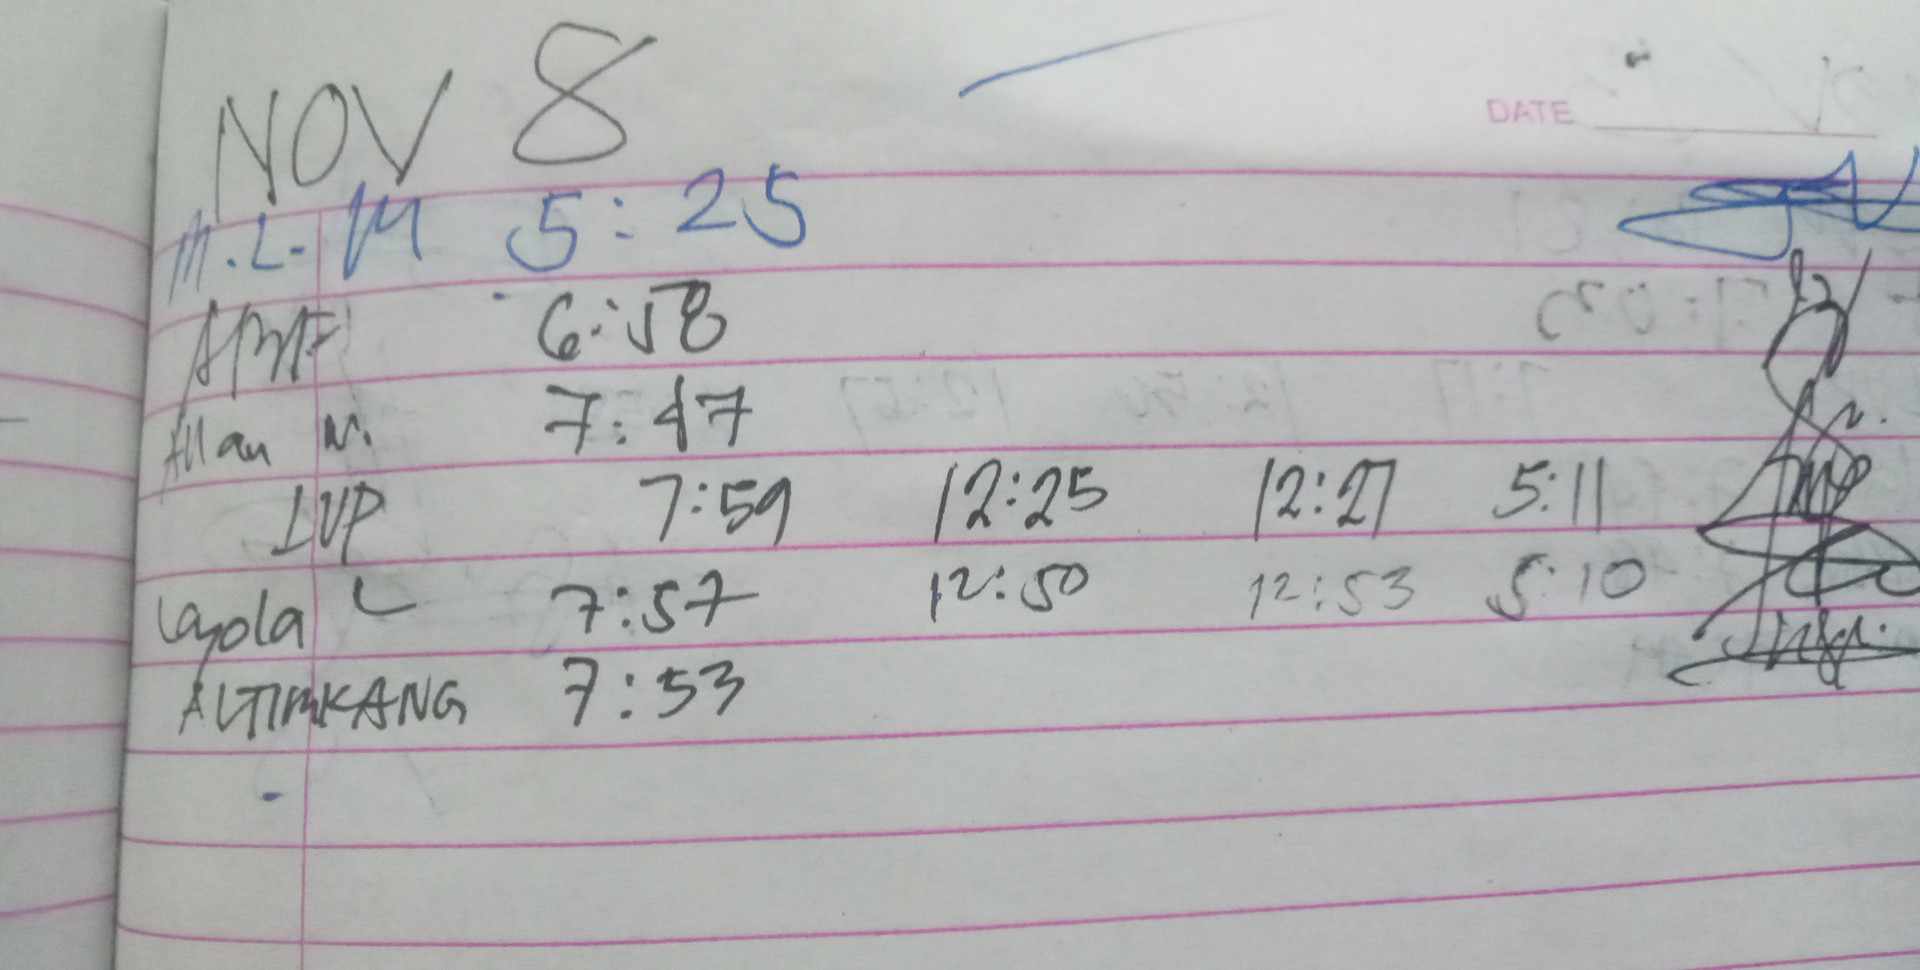 NOV 8
DATE
M.L.M 5:25
6:58
Allan N. 7:47
LVP 7:59 12:25 12:27 5:11
Loyola L 7:57 12:50 12:53 5:10
ALTIMKANG 7:53